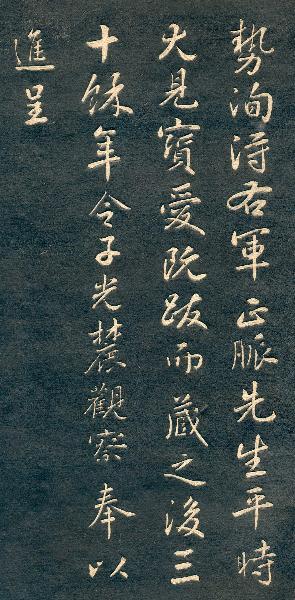 勢洵得右軍正脈先生平時
大見寳愛既跋而蔵之後三
十餘年令子光麓觀察奉以
進呈